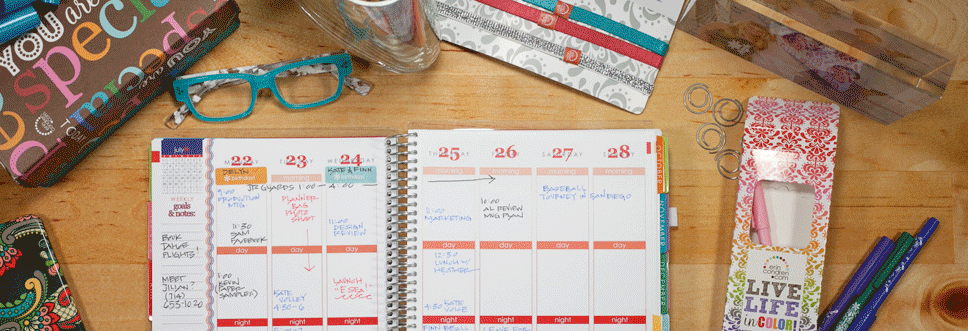 YOU ARE
especial
July
WEEKLY
goals
& notes:
BOOK
TAHOE
FLIGHTS!
MEET
JILLN?
(714)
653-1020
22
23
24
JELYN
birthday
KATE & FINN
birthday
morning
JR GUARDS 1:00 - 4:00
9:00
PRODUCTION
MTG
11:30
SAM
FACEBOOK
PLANNER
BAG
PHOTO
SHOOT
11:00
DESIGN
REVIEW
day
day
day
1:00
(PAPER
SAMPLES)
KATE
VOLLEY
4:30-6
LAUNCH
night
night
night
25
26
SATURDAY
27
28
morning
morning
morning
morning
11:00
MARKETING
10:00
AL REVIEW
MNG PLAN
BASEBALL
TOURNEY IN SAN DIEGO
day
day
day
day
12:30
LUNCH W/
HEATHER
4:30 KATE
VOLLEY
night
night
night
night
OCTOBER
NOVEMBER
DECEMBER
erin
condren
.com
LIVE
LIFE
in COLOR!